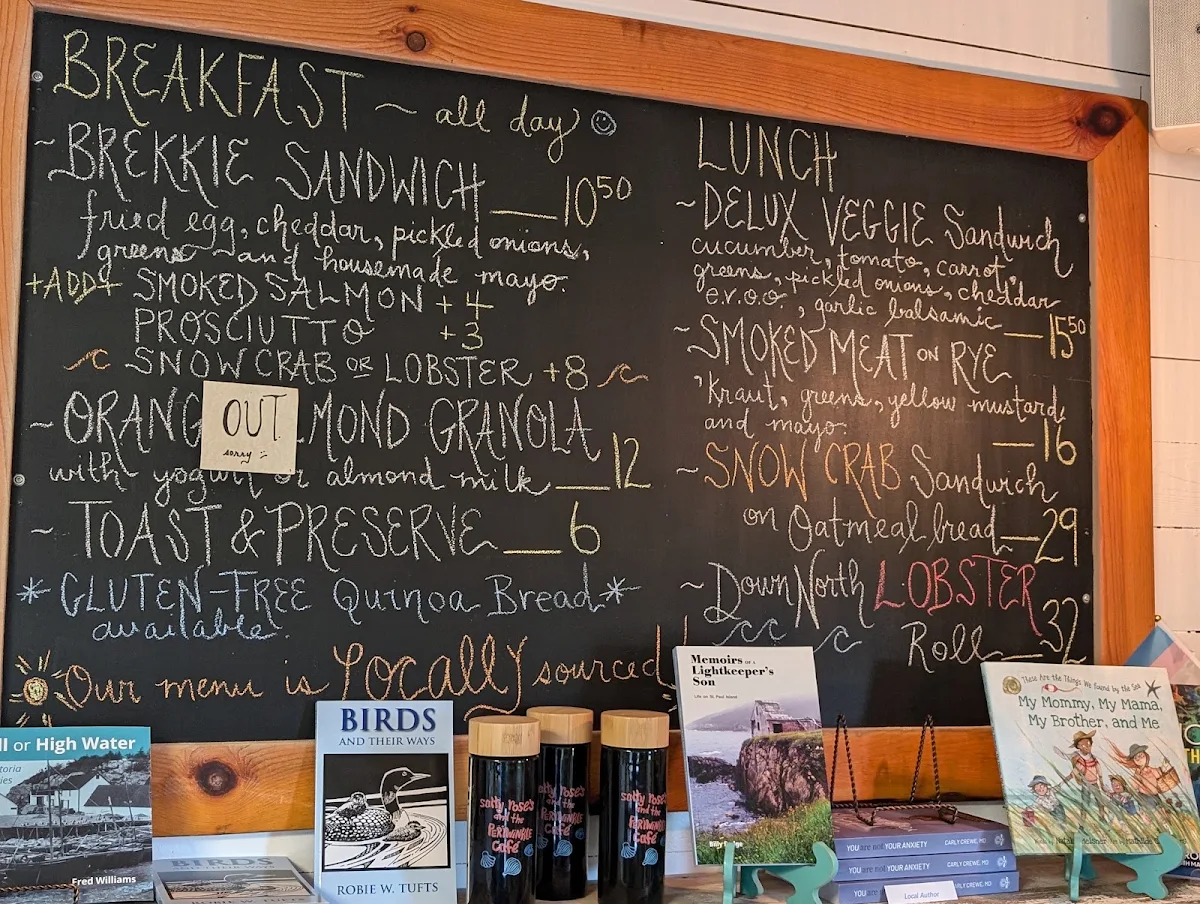 BREAKFAST ~ all day
~BREKKIE SANDWICH __ 10⁵⁰
fried egg, cheddar, pickled onions,
greens and housemade mayo.
+ADD+ SMOKED SALMON +4
PROSCIUTTO +3
SNOW CRAB or LOBSTER +8
~ORANG MOND GRANOLA
OUT
sorry :)
with yogurt or almond milk __ 12
~ TOAST & PRESERVE __ 6
* GLUTEN-FREE Quinoa Bread *
available.
Our menu is LOCALLY sourced!
LUNCH
~DELUX VEGGIE Sandwich
cucumber, tomato, carrot,
greens, pickled onions, cheddar
e.v.o.o., garlic balsamic __ 15⁵⁰
~SMOKED MEAT ON RYE
'kraut, greens, yellow mustard,
and mayo. __ 16
~SNOW CRAB Sandwich
on Oatmeal bread __ 29
~Down North LOBSTER
Roll __ 32
ll or High Water
Fred Williams
BIRDS
BIRDS
AND THEIR WAYS
ROBIE W. TUFTS
salty rose's
and the
PERIWINKLE
CAFÉ
salty rose's
and the
PERIWINKLE
CAFÉ
Memoirs OF A
Lightkeeper's
Son
Life on St. Paul Island
YOU are not YOUR ANXIETY CARLY CREWE, MD
YOU are not YOUR ANXIETY CARLY CREWE, MD
YOU CARLY CREWE, MD
Local Author
These Are the Things We Found by the Sea
My Mommy, My Mama,
My Brother, and Me